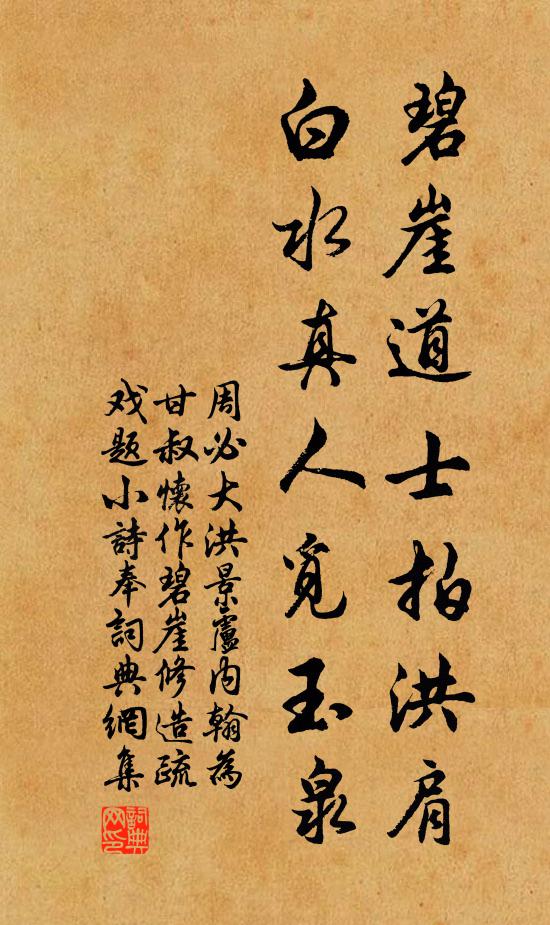 碧崖道士拍洪肩
白水真人覓玉泉
周必大洪景盧内翰為
甘叔懷作碧崖修造疏
戏题小詩奉詞典網集
詞典网印